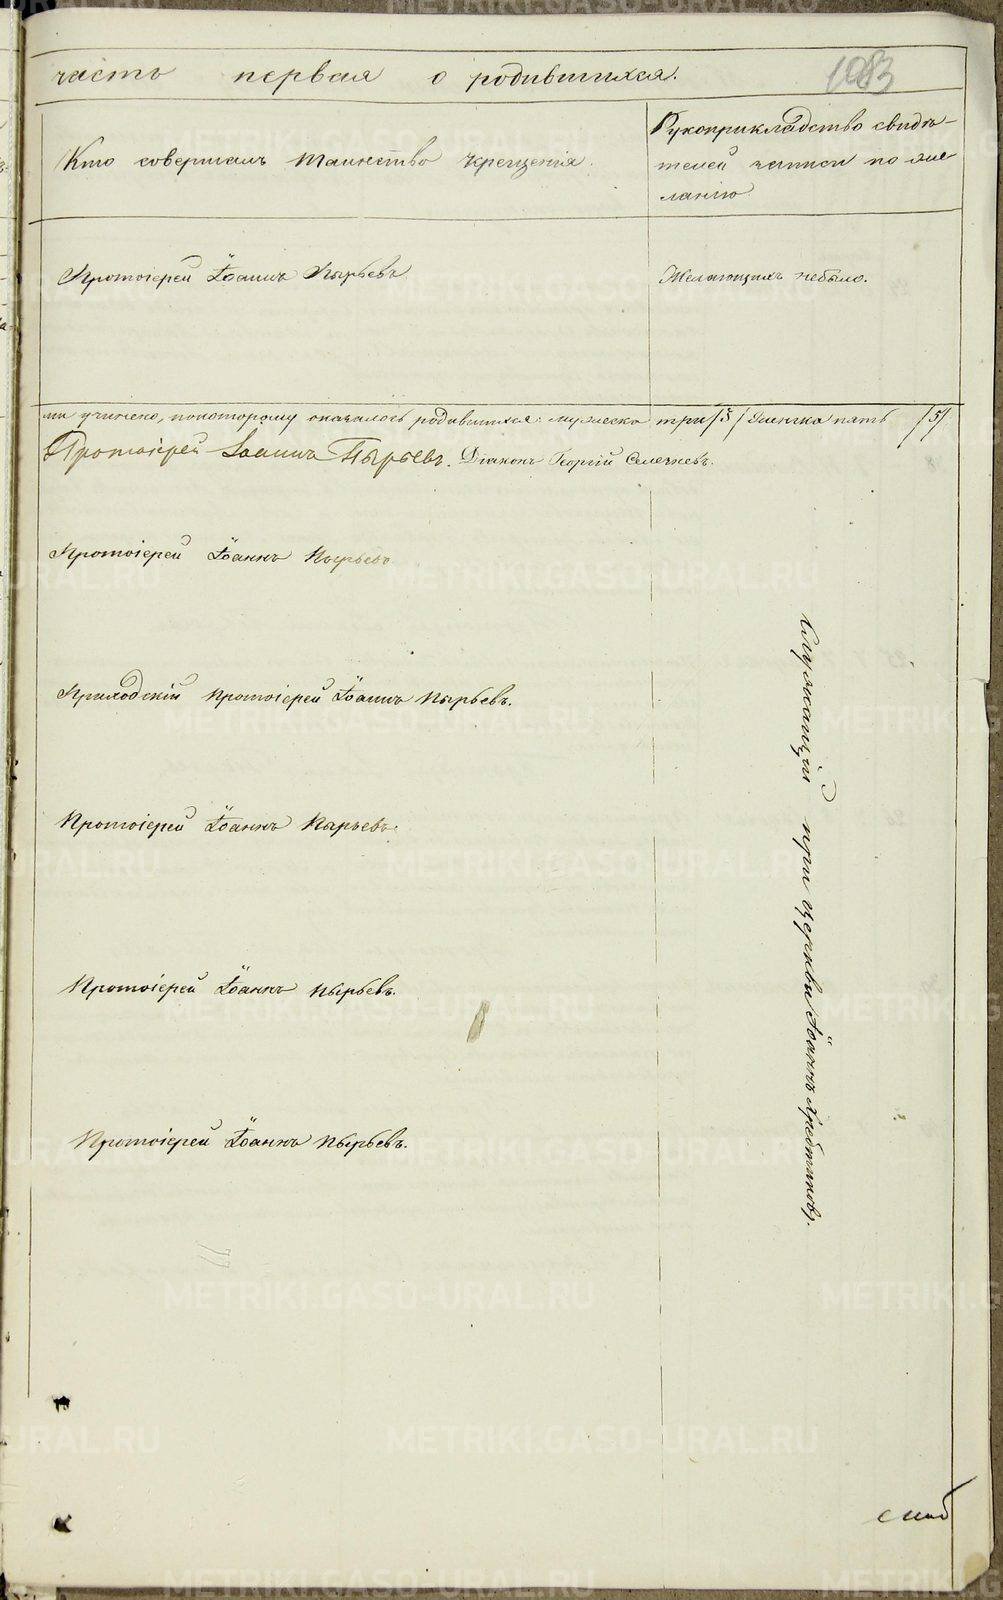 часть первая о родившихся.
1083
Кто совершалъ таинство крещенія.
Рукоприкладство свидѣ-
телей записи по же
ланію
Протоіерей Іоаннъ Пырьевъ
Желающихъ небыло.
ми учинено, покоторому оказалось родившихся: мужеска три /3/ женска пять /5/
Протоіерей Іоаннъ Пырьевъ. Діаконъ Георгій Селечневъ.
Протоіерей Іоаннъ Пырьевъ
Приходскій протоіерей Іоаннъ Пырьевъ.
Протоіерей Іоаннъ Пырьевъ.
Протоіерей Іоаннъ Пырьевъ.
Протоіерей Іоаннъ Пырьевъ.
Служащій при церкви Іоаннъ
METRIKI.GASO-URAL.RU